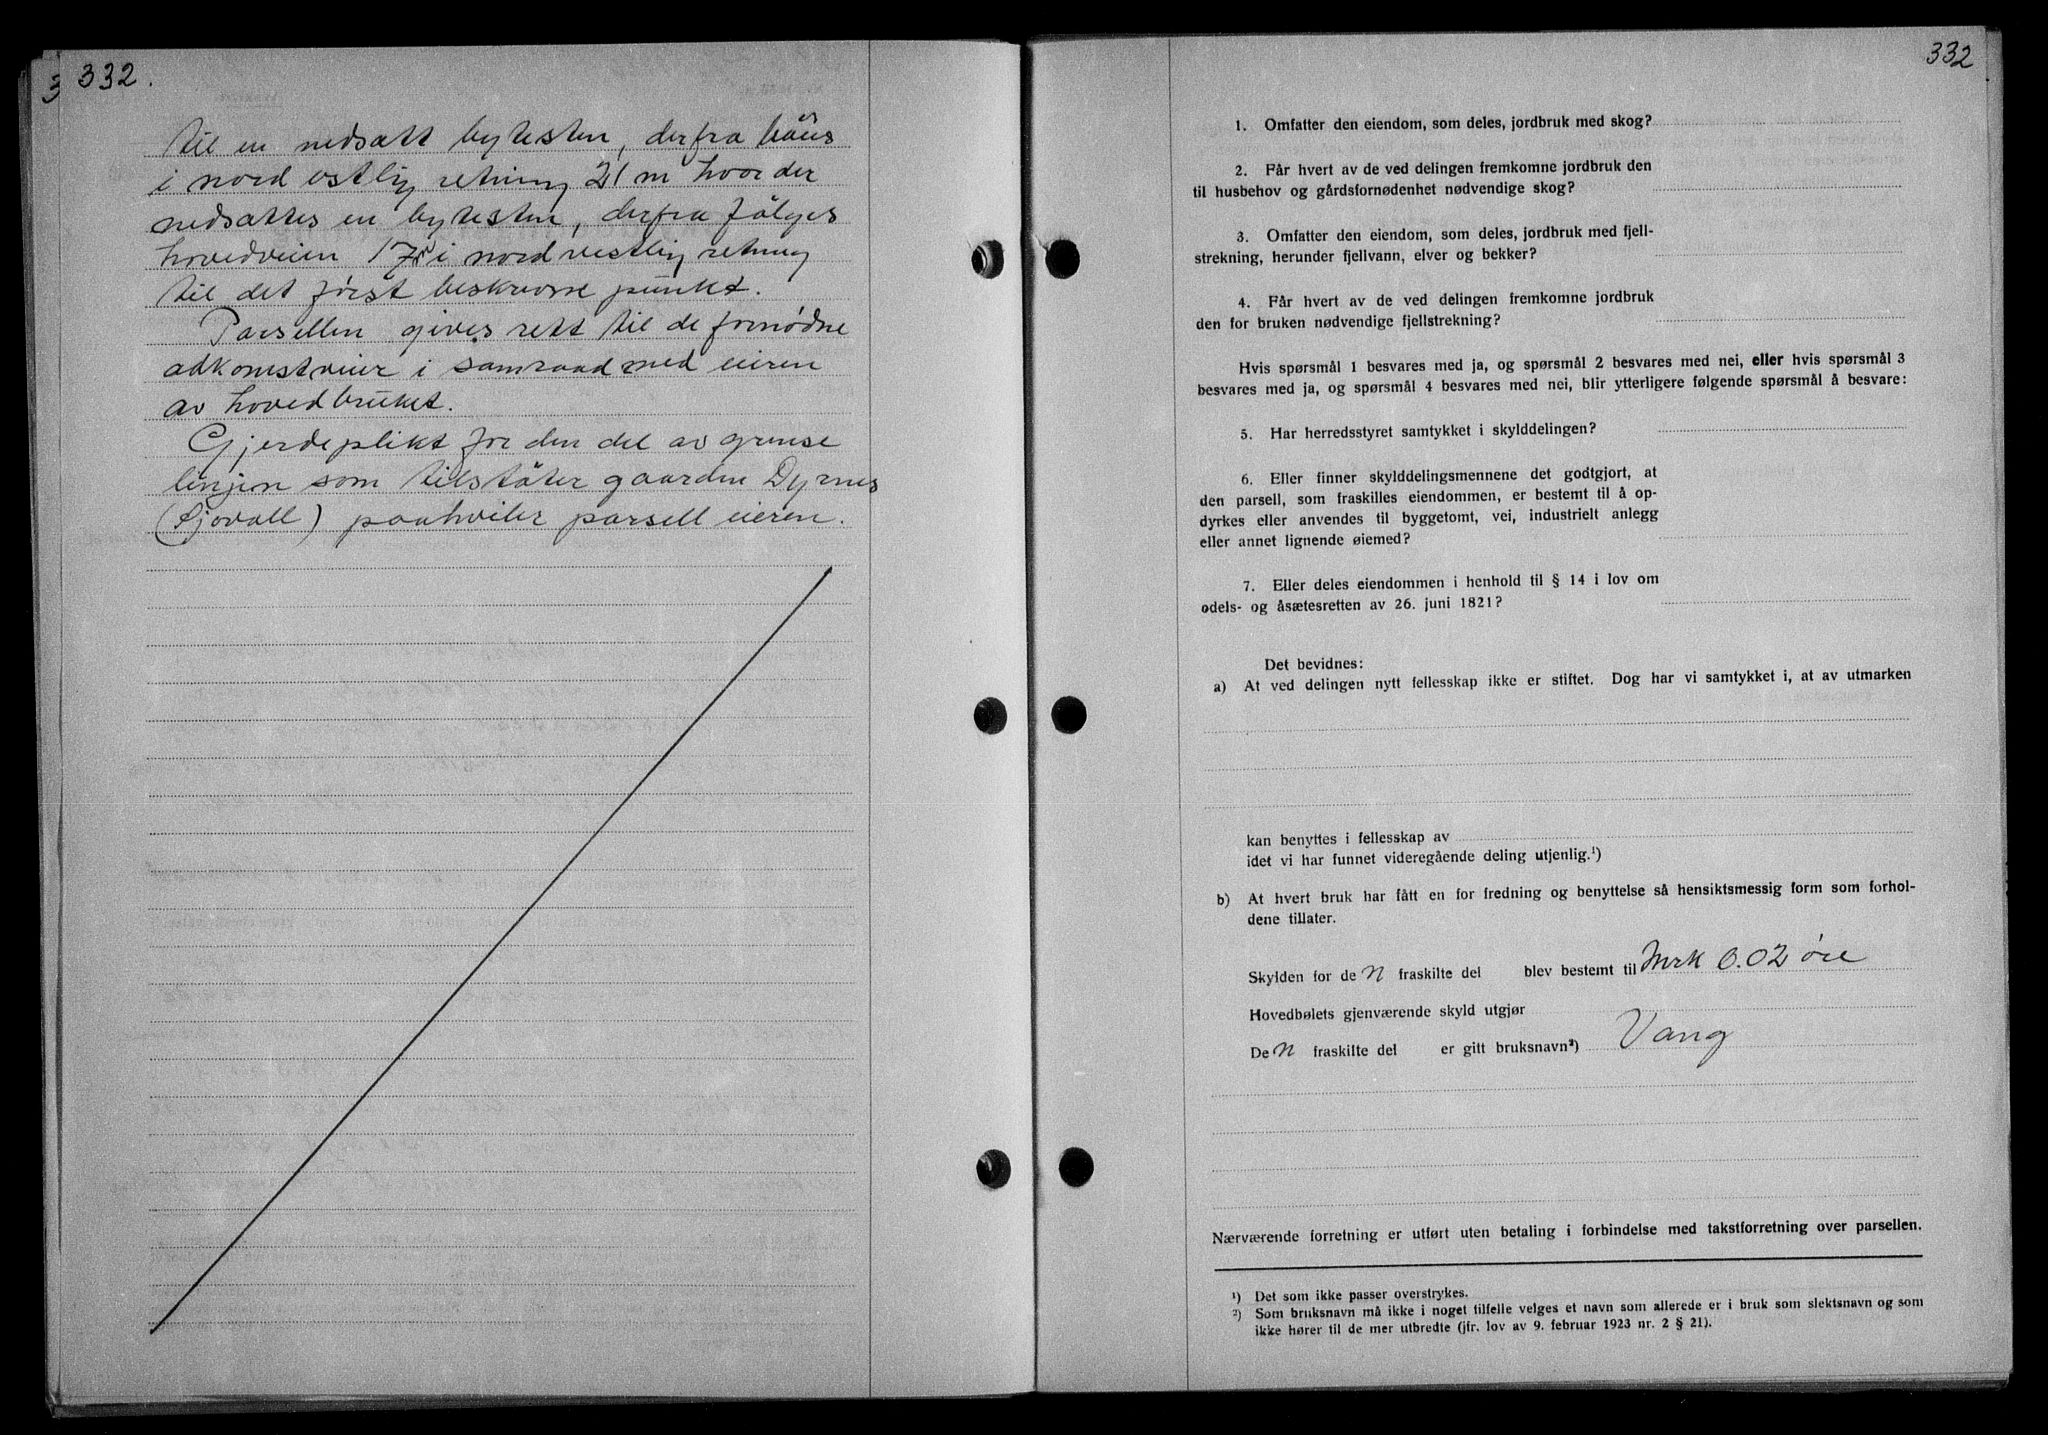 332.
til en nedsatt bytesten, derfra
i nord ostlig retning 21 m hvor der
nedsættes en bytesten, derfra fölges
hovedveien 17 m i nord vestlig retning
til det først beskrevne punkt.
Parsellen gives rett til de fornødne
adkomstveier i samraad med eieren
av hovedbruket.
Gjerdeplikt for den del av grense
linjen som tilstöter gaarden Dyrnes
(Sjovoll) paahviler parsell eieren.
332
1. Omfatter den eiendom, som deles, jordbruk med skog?
2. Får hvert av de ved delingen fremkomne jordbruk den
til husbehov og gårdsfornødenhet nødvendige skog?
3. Omfatter den eiendom, som deles, jordbruk med fjell-
strekning, herunder fjellvann, elver og bekker?
4. Får hvert av de ved delingen fremkomne jordbruk
den for bruken nødvendige fjellstrekning?
Hvis spørsmål 1 besvares med ja, og spørsmål 2 besvares med nei, eller hvis spørsmål 3
besvares med ja, og spørsmål 4 besvares med nei, blir ytterligere følgende spørsmål å besvare:
5. Har herredsstyret samtykket i skylddelingen?
6. Eller finner skylddelingsmennene det godtgjort, at
den parsell, som fraskilles eiendommen, er bestemt til å op-
dyrkes eller anvendes til byggetomt, vei, industrielt anlegg
eller annet lignende øiemed?
7. Eller deles eiendommen i henhold til § 14 i lov om
odels- og åsætesretten av 26. juni 1821?
Det bevidnes:
a) At ved delingen nytt fellesskap ikke er stiftet. Dog har vi samtykket i, at av utmarken
kan benyttes i fellesskap av
idet vi har funnet videregående deling utjenlig.¹)
b) At hvert bruk har fått en for fredning og benyttelse så hensiktsmessig form som forhol-
dene tillater.
Skylden for de n fraskilte del blev bestemt til Mrk 0.02 øre
Hovedbølets gjenværende skyld utgjør
De n fraskilte del er gitt bruksnavn²) Vang
Nærværende forretning er utført uten betaling i forbindelse med takstforretning over parsellen.
¹) Det som ikke passer overstrykes.
²) Som bruksnavn må ikke i noget tilfelle velges et navn som allerede er i bruk som slektsnavn og som
ikke hører til de mer utbredte (jfr. lov av 9. februar 1923 nr. 2 § 21).